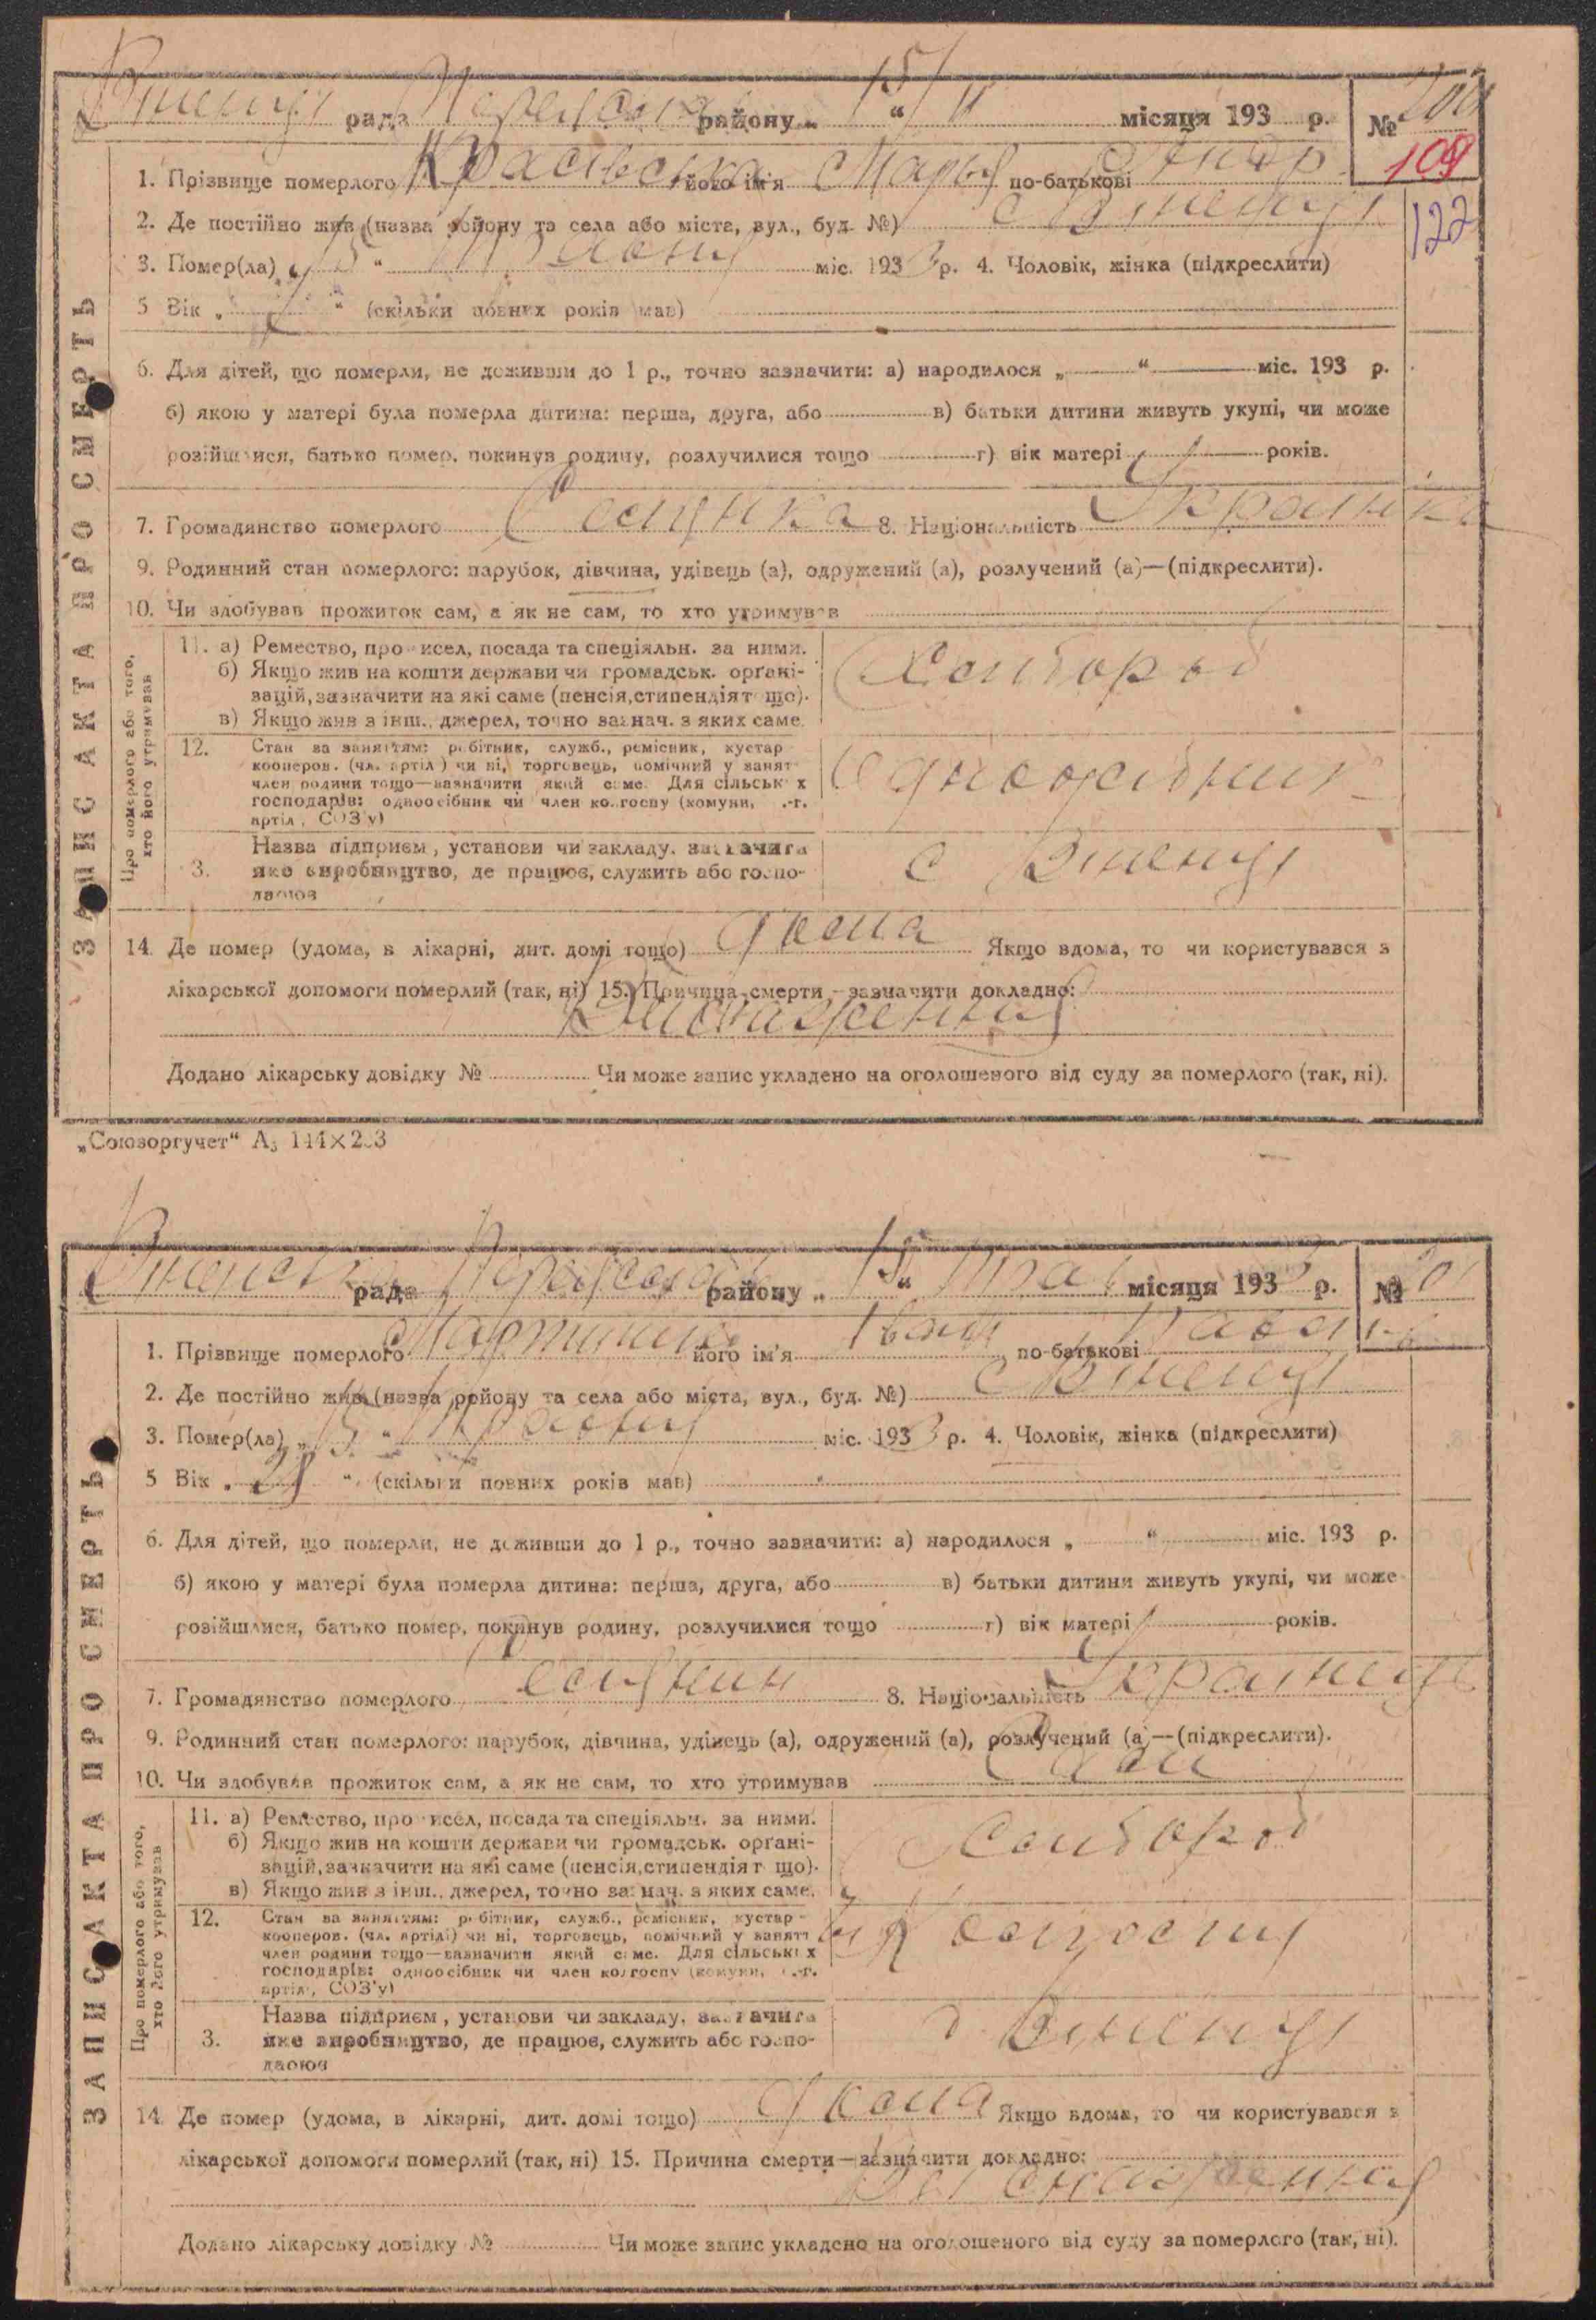 рада району „ 15/V “ місяця 193 р. № 200
109
122
1. Прізвище померлого його ім'я Марья по-батькові
2. Де постійно жив (назва району та села або міста, вул., буд. №) с Вшенця
3. Помер(ла) „ 15 “ травня міс. 1933 р. 4. Чоловік, жінка (підкреслити)
5 Вік „ “ (скільки повних років мав)
6. Для дітей, що померли, не доживши до 1 р., точно зазначити: а) народилося „ “ міс. 193 р.
б) якою у матері була померла дитина: перша, друга, або в) батьки дитини живуть укупі, чи може
розійшлися, батько помер, покинув родину, розлучилися тощо г) вік матері років.
7. Громадянство померлого 8. Національність Українка
9. Родинний стан померлого: парубок, дівчина, удівець (а), одружений (а), розлучений (а)—(підкреслити).
10. Чи здобував прожиток сам, а як не сам, то хто утримував
ЗАПИС АКТА ПРО СМЕРТЬ
Про померлого або того, хто його утримував
11. а) Ремество, промисел, посада та спеціяльн. за ними.
б) Якщо жив на кошти держави чи громадськ. органі-
зацій, зазначити на які саме (пенсія, стипендія т що).
в) Якщо жив з інш., джерел, точно зазнач. з яких саме.
Хлібороб
12. Стан за заняттям: робітник, служб., ремісник, кустар
кооперов. (чл. артілі) чи ні, торговець, помічний у занят
член родини тощо—зазначити який саме. Для сільських
господарів: одноосібник чи член колгоспу (комуни, с.-г.
артілі, СОЗ'у)
Одноосібник
3. Назва підприєм, установи чи закладу, зазначити
яке виробництво, де працює, служить або госпо-
дарює
с Вшенця
14. Де помер (удома, в лікарні, дит. домі тощо) дома Якщо вдома, то чи користувався з
лікарської допомоги померлий (так, ні) 15. Причина смерти—зазначити докладно:
Виснаження
Додано лікарську довідку № Чи може запис укладено на оголошеного від суду за померлого (так, ні).
„Союзоргучет“ А₅ 144×203
рада району „ 15 “ трав місяця 1933 р. № 201
1. Прізвище померлого його ім'я Іван по-батькові
2. Де постійно жив (назва району та села або міста, вул., буд. №) с Вшенця
3. Помер(ла) „ 15 “ травня міс. 1933 р. 4. Чоловік, жінка (підкреслити)
5 Вік „ “ (скільки повних років мав)
6. Для дітей, що померли, не доживши до 1 р., точно зазначити: а) народилося „ “ міс. 193 р.
б) якою у матері була померла дитина: перша, друга, або в) батьки дитини живуть укупі, чи може
розійшлися, батько помер, покинув родину, розлучилися тощо г) вік матері років.
7. Громадянство померлого 8. Національність Українець
9. Родинний стан померлого: парубок, дівчина, удівець (а), одружений (а), розлучений (а)—(підкреслити).
10. Чи здобував прожиток сам, а як не сам, то хто утримував Сам
ЗАПИС АКТА ПРО СМЕРТЬ
Про померлого або того, хто його утримував
11. а) Ремество, промисел, посада та спеціяльн. за ними.
б) Якщо жив на кошти держави чи громадськ. органі-
зацій, зазначити на які саме (пенсія, стипендія т що).
в) Якщо жив з інш., джерел, точно зазнач. з яких саме.
Хлібороб
12. Стан за заняттям: робітник, служб., ремісник, кустар
кооперов. (чл. артілі) чи ні, торговець, помічний у занятт
член родини тощо—зазначити який саме. Для сільських
господарів: одноосібник чи член колгоспу (комуни, с.-г.
артілі, СОЗ'у)
3. Назва підприєм, установи чи закладу, зазначити
яке виробництво, де працює, служить або госпо-
дарює
с Вшенця
14. Де помер (удома, в лікарні, дит. домі тощо) Якщо вдома, то чи користувався з
лікарської допомоги померлий (так, ні) 15. Причина смерти—зазначити докладно:
Додано лікарську довідку № Чи може запис укладено на оголошеного від суду за померлого (так, ні).